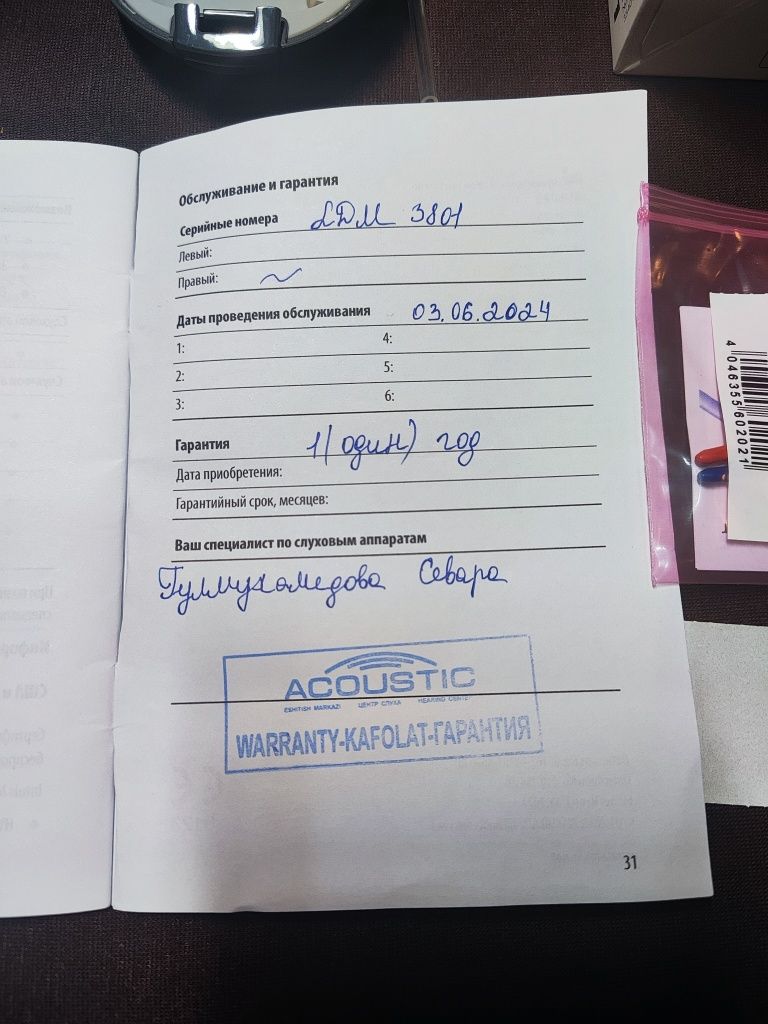 Обслуживание и гарантия
Серийные номера LDM 3801
Левый:
Правый:
Даты проведения обслуживания 03.06.2024
1: 4:
2: 5:
3: 6:
Гарантия 1 (один) год
Дата приобретения:
Гарантийный срок, месяцев:
Ваш специалист по слуховым аппаратам
Гулмухамедова Севара
ACOUSTIC
ESHITISH MARKAZI ЦЕНТР СЛУХА HEARING CENTER
WARRANTY-KAFOLAT-ГАРАНТИЯ
31
4046355602021